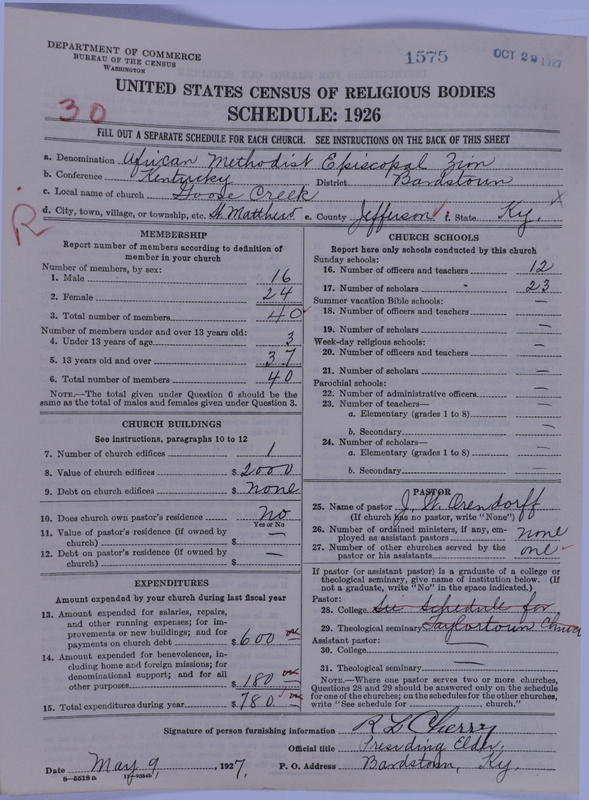 DEPARTMENT OF COMMERCE
BUREAU OF THE CENSUS
WASHINGTON
1575
OCT 29 1927
30
UNITED STATES CENSUS OF RELIGIOUS BODIES
SCHEDULE: 1926
FILL OUT A SEPARATE SCHEDULE FOR EACH CHURCH. SEE INSTRUCTIONS ON THE BACK OF THIS SHEET
a. Denomination African Methodist Episcopal Zion
b. Conference Kentucky District Bardstown
c. Local name of church Goose Creek
d. City, town, village, or township, etc. St. Matthews e. County Jefferson f. State Ky. x
R
MEMBERSHIP
Report number of members according to definition of
member in your church
Number of members, by sex:
1. Male 16
2. Female 24
3. Total number of members 40
Number of members under and over 13 years old:
4. Under 13 years of age 3
5. 13 years old and over 37
6. Total number of members 40
NOTE.—The total given under Question 6 should be the
same as the total of males and females given under Question 3.
CHURCH BUILDINGS
See instructions, paragraphs 10 to 12
7. Number of church edifices 1
8. Value of church edifices $ 2000
9. Debt on church edifices $ none
10. Does church own pastor's residence no
Yes or No
11. Value of pastor's residence (if owned by
church) $ —
12. Debt on pastor's residence (if owned by
church) $ —
EXPENDITURES
Amount expended by your church during last fiscal year
13. Amount expended for salaries, repairs,
and other running expenses; for im-
provements or new buildings; and for
payments on church debt $ 600
14. Amount expended for benevolences, in-
cluding home and foreign missions; for
denominational support; and for all
other purposes $ 180
15. Total expenditures during year $ 780
CHURCH SCHOOLS
Report here only schools conducted by this church
Sunday schools:
16. Number of officers and teachers 12
17. Number of scholars 23
Summer vacation Bible schools: —
18. Number of officers and teachers
19. Number of scholars —
Week-day religious schools: —
20. Number of officers and teachers
21. Number of scholars —
Parochial schools:
22. Number of administrative officers —
23. Number of teachers—
a. Elementary (grades 1 to 8) —
b. Secondary —
24. Number of scholars—
a. Elementary (grades 1 to 8) —
b. Secondary —
PASTOR
25. Name of pastor J. W. Orendorff
(If church has no pastor, write "None")
26. Number of ordained ministers, if any, em-
ployed as assistant pastors none
27. Number of other churches served by the
pastor or his assistants one
If pastor (or assistant pastor) is a graduate of a college or
theological seminary, give name of institution below. (If
not a graduate, write "No" in the space indicated.)
Pastor:
28. College See Schedule for
29. Theological seminary Taylortown Church
Assistant pastor:
30. College —
31. Theological seminary —
NOTE.—Where one pastor serves two or more churches,
Questions 28 and 29 should be answered only on the schedule
for one of the churches; on the schedules for the other churches,
write "See schedule for church."
Signature of person furnishing information R L Cherry
Official title Presiding Elder,
Date May 9, 1927. P. O. Address Bardstown, Ky.